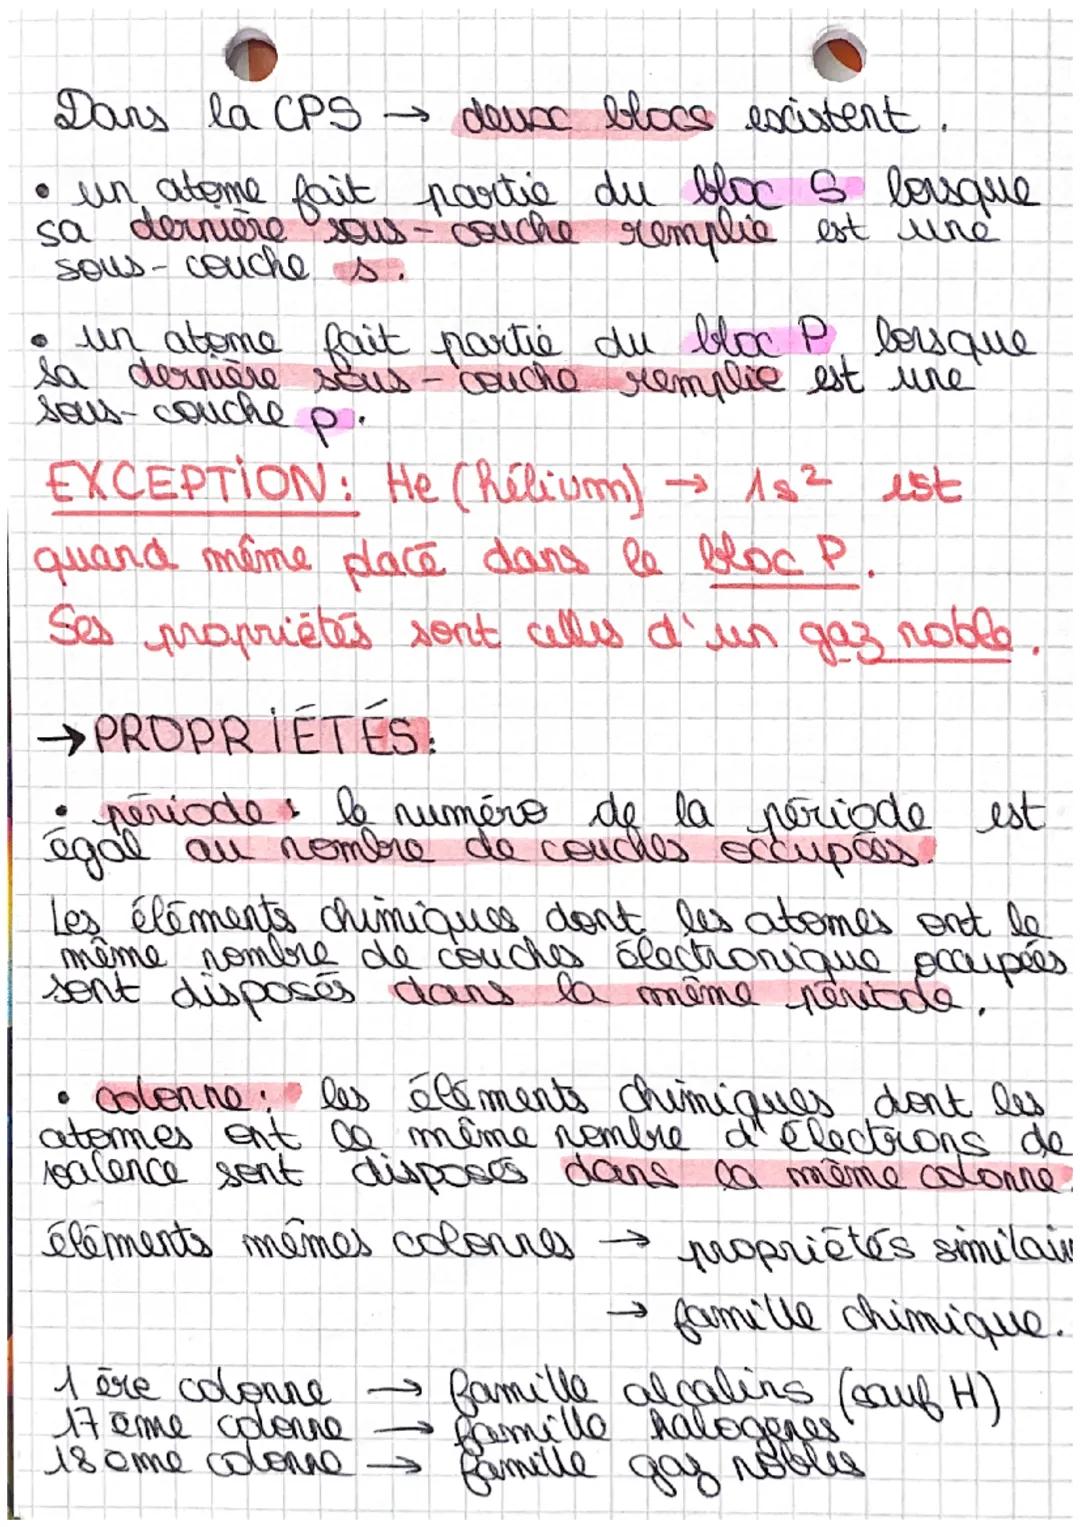 Dans la CPS → deux blocs existent.
• un atome fait partie du bloc S lorsque
sa dernière sous-couche remplie est une
sous-couche s.
• un atome fait partie du bloc P lorsque
sa dernière sous-couche remplie est une
sous-couche p.
EXCEPTION: He (hélium) → 1s² est
quand même placé dans le bloc P.
Ses propriétés sont celles d'un gaz noble.
→ PROPRIÉTÉS:
• période: le numéro de la période est
égal au nombre de couches occupées.
Les éléments chimiques dont les atomes ont le
même nombre de couches électronique occupées
sont disposés dans la même période.
• colonne: les éléments chimiques dont les
atomes ont le même nombre d'électrons de
valence sont disposés dans la même colonne.
éléments mêmes colonnes → propriétés similair
→ famille chimique.
1 ère colonne → famille alcalins (sauf H)
17 ème colonne → famille halogènes
18 ème colonne → famille gaz nobles